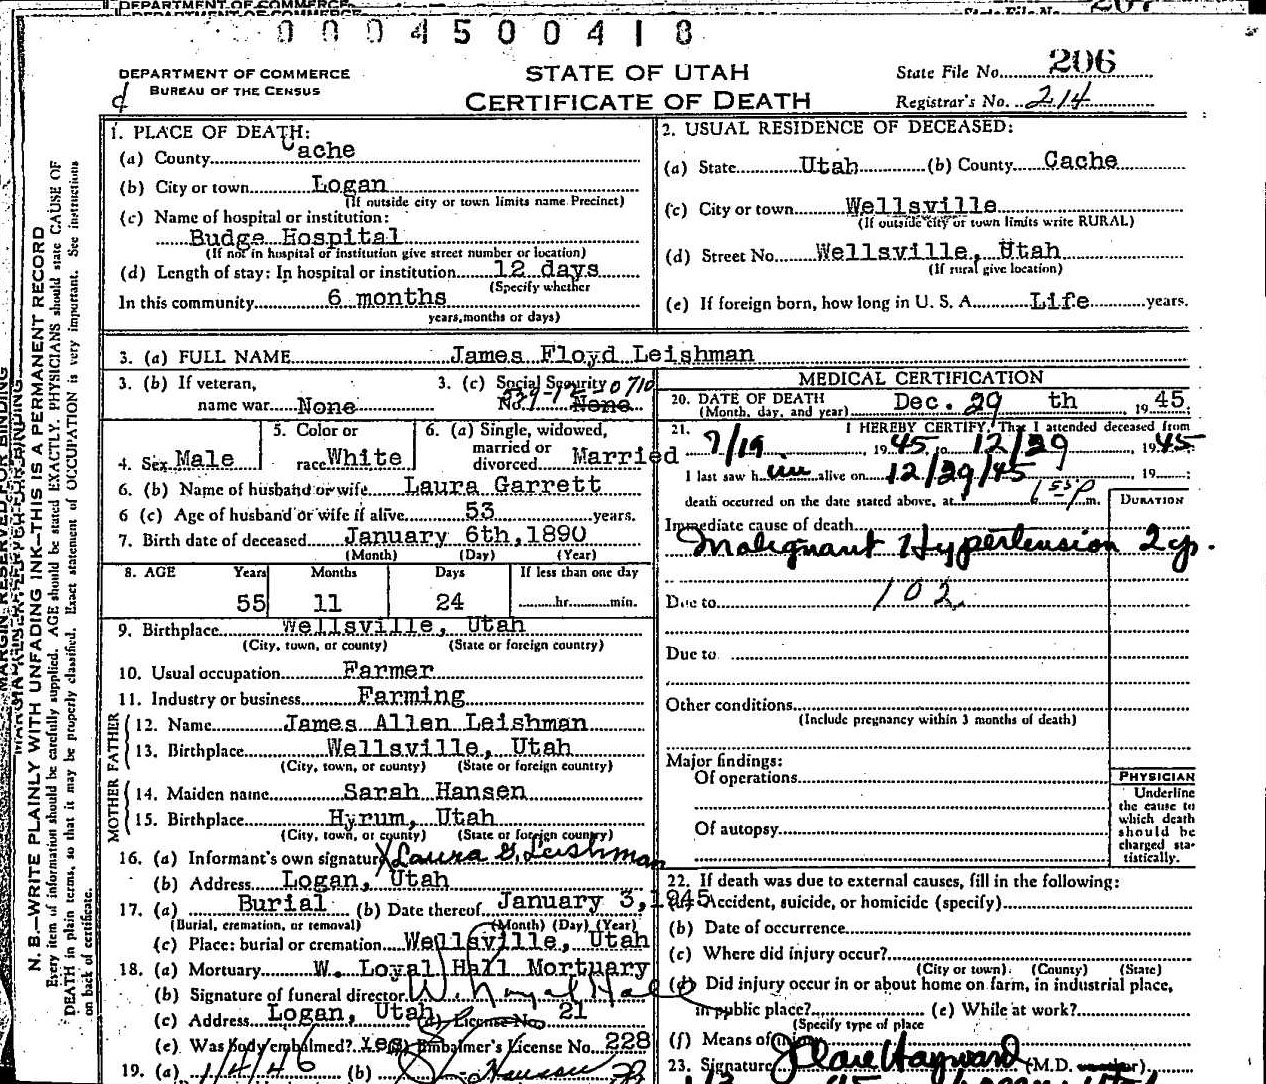 DEPARTMENT OF COMMERCE
0 0 0 4 5 0 0 4 1 8
DEPARTMENT OF COMMERCE
BUREAU OF THE CENSUS
d
STATE OF UTAH
CERTIFICATE OF DEATH
State File No. 206
Registrar's No. 214
N. B.—WRITE PLAINLY WITH UNFADING INK—THIS IS A PERMANENT RECORD
Every item of information should be carefully supplied. AGE should be stated EXACTLY. PHYSICIANS should state CAUSE OF
DEATH in plain terms, so that it may be properly classified. Exact statement of OCCUPATION is very important. See instructions
on back of certificate.
1. PLACE OF DEATH:
(a) County Cache
(b) City or town Logan
(If outside city or town limits name Precinct)
(c) Name of hospital or institution:
Budge Hospital
(If not in hospital or institution give street number or location)
(d) Length of stay: In hospital or institution 12 days
(Specify whether
In this community 6 months
years, months or days)
2. USUAL RESIDENCE OF DECEASED:
(a) State Utah (b) County Cache
(c) City or town Wellsville
(If outside city or town limits write RURAL)
(d) Street No. Wellsville, Utah
(If rural give location)
(e) If foreign born, how long in U. S. A. Life years.
3. (a) FULL NAME James Floyd Leishman
3. (b) If veteran, name war None
3. (c) Social Security No. None
4. Sex Male
5. Color or race White
6. (a) Single, widowed, married or divorced Married
6. (b) Name of husband or wife Laura Garrett
6 (c) Age of husband or wife if alive 53 years.
7. Birth date of deceased January 6th, 1890
(Month) (Day) (Year)
8. AGE Years Months Days If less than one day
55 11 24 hr. min.
9. Birthplace Wellsville, Utah
(City, town, or county) (State or foreign country)
10. Usual occupation Farmer
11. Industry or business Farming
FATHER
12. Name James Allen Leishman
13. Birthplace Wellsville, Utah
(City, town, or county) (State or foreign country)
MOTHER
14. Maiden name Sarah Hansen
15. Birthplace Hyrum, Utah
(City, town, or county) (State or foreign country)
16. (a) Informant's own signature X Laura G. Leishman
(b) Address Logan, Utah
17. (a) Burial (b) Date thereof January 3, 1945
(Burial, cremation, or removal) (Month) (Day) (Year)
(c) Place: burial or cremation Wellsville, Utah
18. (a) Mortuary W. Loyal Hall Mortuary
(b) Signature of funeral director W. Loyal Hall
(c) Address Logan, Utah (d) License No. 21
(e) Was body embalmed? Yes (f) Embalmer's License No. 228
19. (a) 1/4/46 (b)
MEDICAL CERTIFICATION
20. DATE OF DEATH
(Month, day, and year) Dec. 29 th 1945
21. I HEREBY CERTIFY, That I attended deceased from
7/19 1945 to 12/29, 1945
I last saw him alive on 12/29/45 19
death occurred on the date stated above, at 6 55 P m.
DURATION
Immediate cause of death
Malignant Hypertension 2 yr.
Due to 102
Due to
Other conditions
(Include pregnancy within 3 months of death)
Major findings:
Of operations
Of autopsy
PHYSICIAN
Underline
the cause to
which death
should be
charged sta-
tistically.
22. If death was due to external causes, fill in the following:
(a) Accident, suicide, or homicide (specify)
(b) Date of occurrence
(c) Where did injury occur?
(City or town) (County) (State)
(d) Did injury occur in or about home on farm, in industrial place,
in public place? (e) While at work?
(Specify type of place
(f) Means of injury
23. Signature J Clare Hayward (M.D.